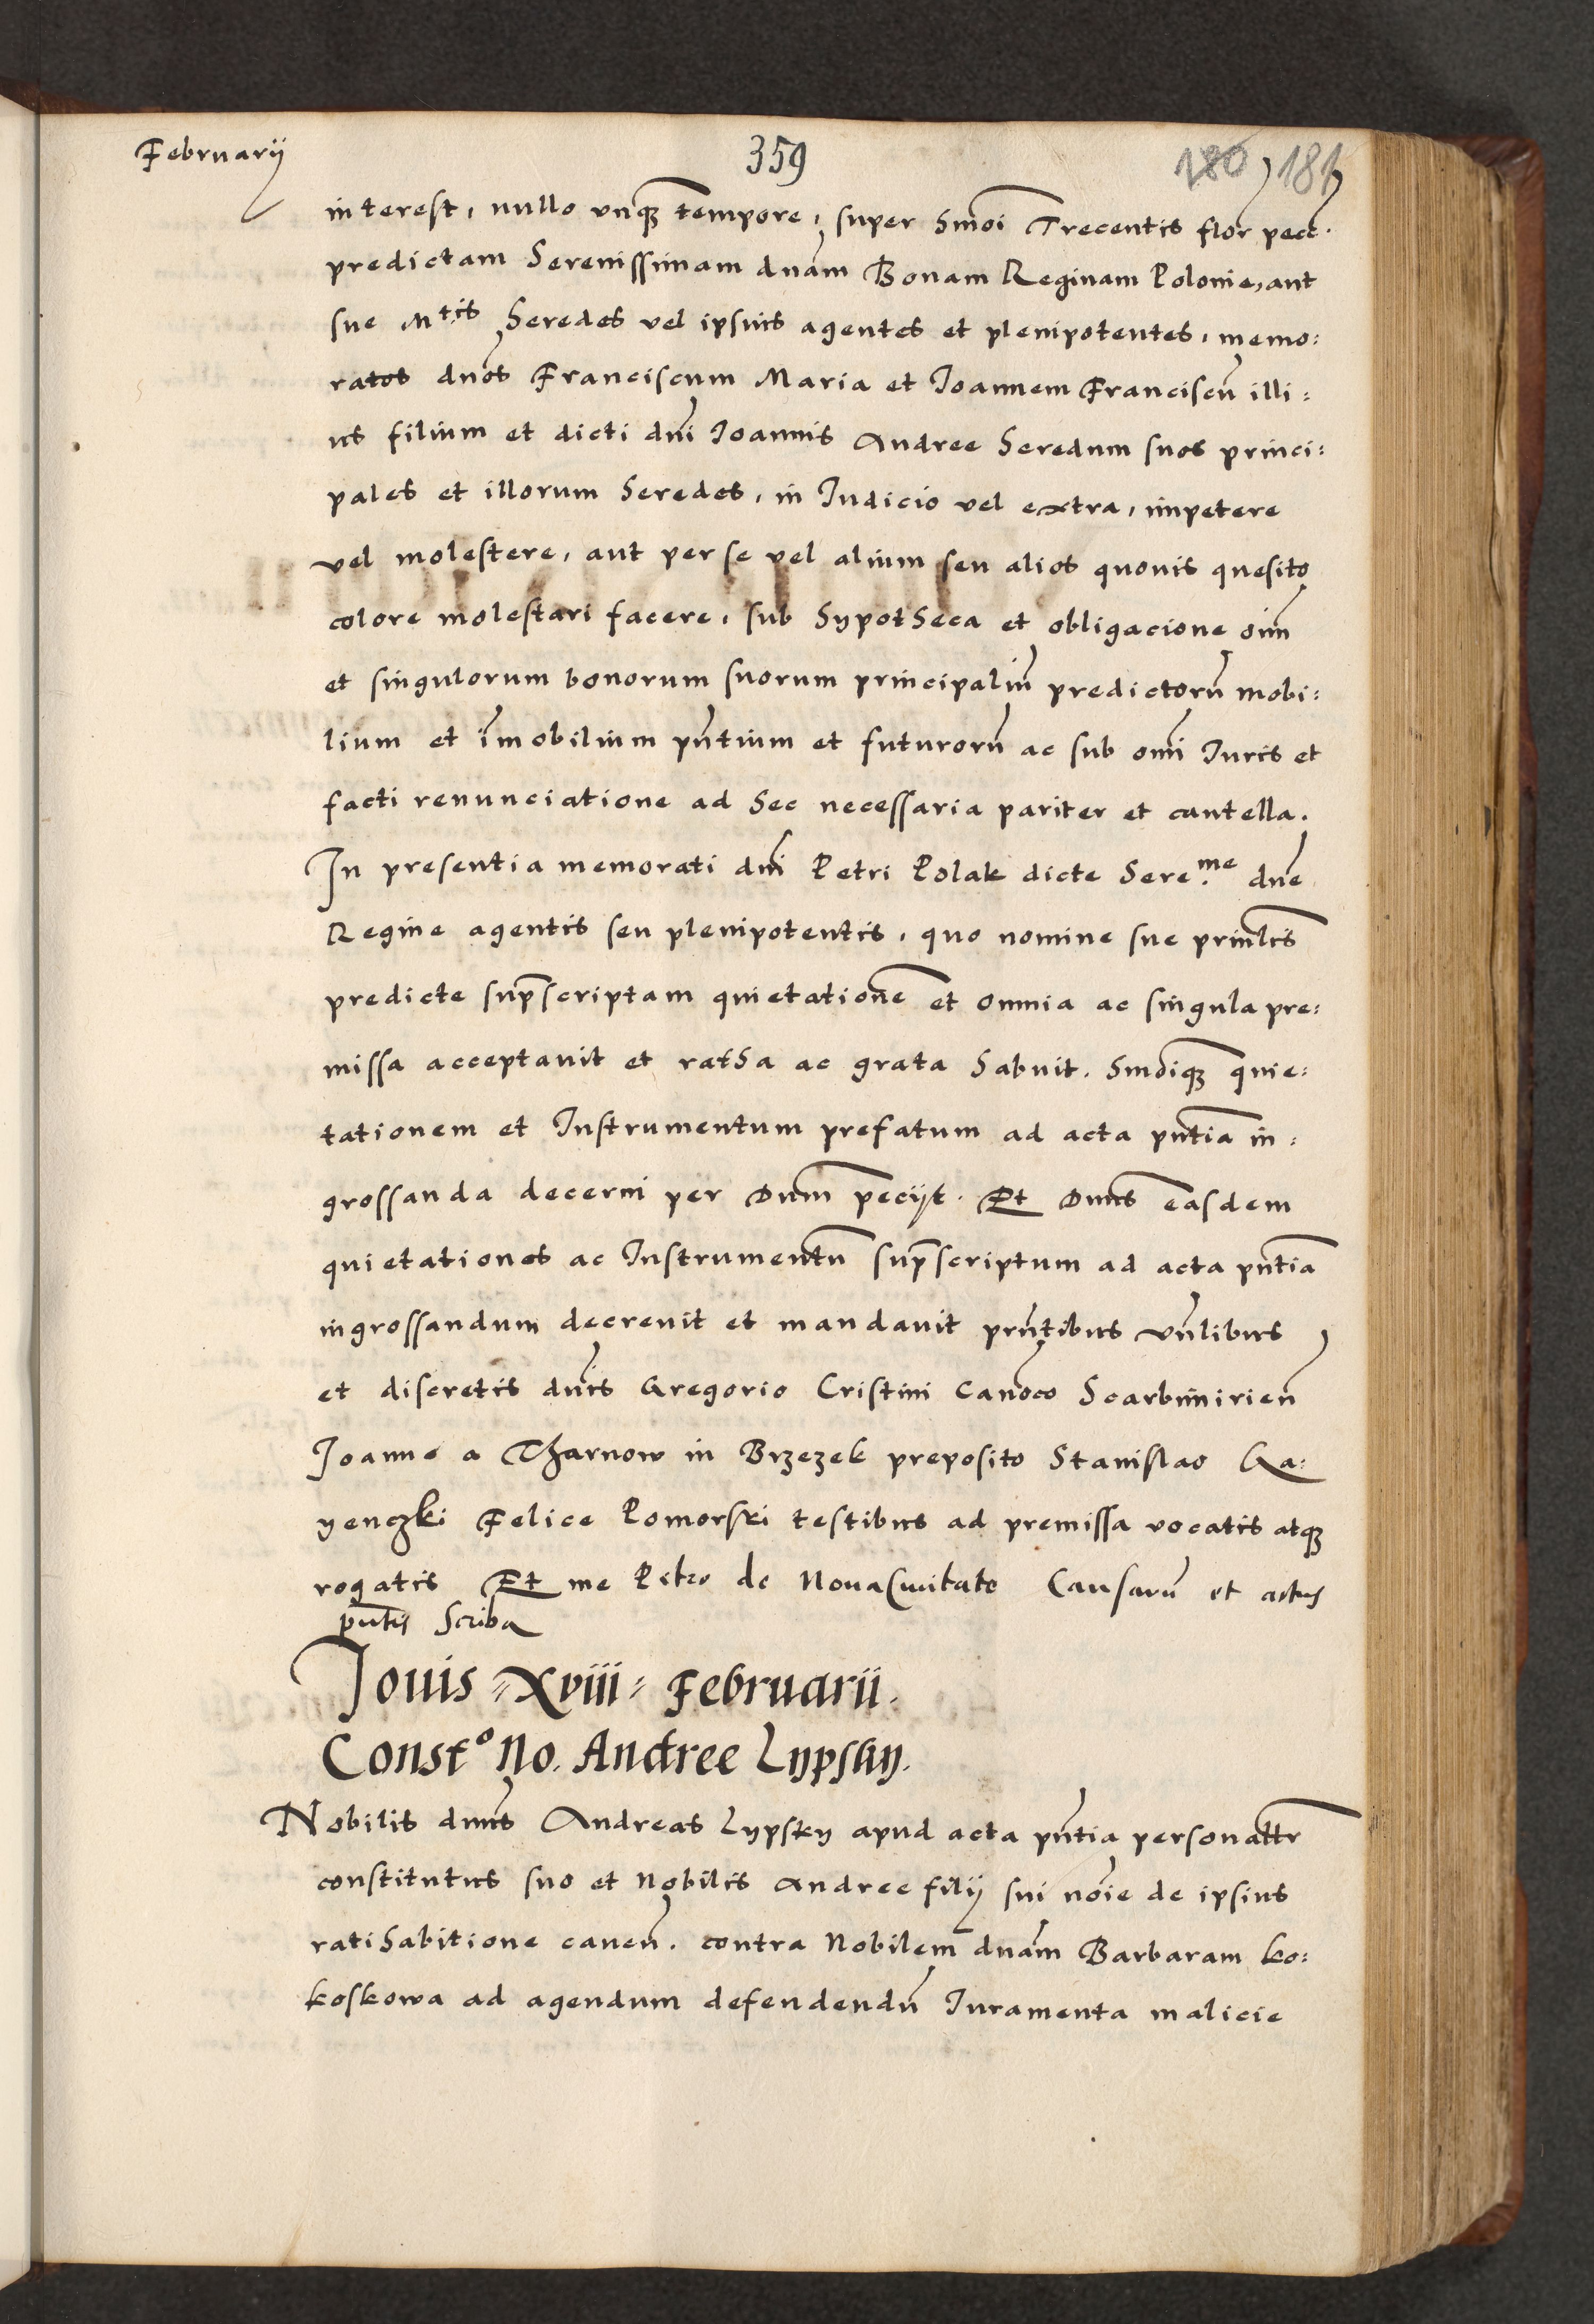 Februarij
359
180 181
interest, nullo vnq̃ tempore, super hm̃oi Trecentis flor̃ pecc.
predictam Serenissimam dnãm Bonam Reginam Polonie, aut
sue Mtis heredes vel ipsius agentes et plenipotentes, memo:
ratos dnõs Franciscum Maria et Joannem Franciscũ illi:
us filium et dicti dnĩ Joannis Andree heredum suos princi:
pales et illorum heredes, in Iudicio vel extra, impetere
vel molestere, aut per se vel alium seu alios quouis quesito
colore molestari facere, sub hypotheca et obligacione oĩm
et singulorum bonorum suorum principaliũ predictorũ mobi:
lium et im̃obilium pñtium et futurorũ ac sub omĩ Iuris et
facti renunciatione ad hec necessaria pariter et cautella.
In presentia memorati dnĩ Petri Polak dicte Sere.me dnẽ
Regine agentis seu plenipotentis, quo nomine sue prinl̃is
predicte sup̃scriptam quietationẽ et omnia ac singula pre:
missa acceptauit et ratha ac grata habuit. hm̃oiq̃ quie:
tationem et Instrumentum prefatum ad acta pñtia in:
grossanda decerni per Dnũm pecijt. Et Dnũs easdem
quietationes ac Instrumentũ sup̃scriptum ad acta pñtia
ingrossandum decreuit et mandauit prñtibus vñlibus
et discretis dnĩs Gregorio Cristini Canõco Scarbimirieñ
Joanne a Tharnow in Brzezek preposito Stanislao Ga:
yenczki Felice Pomorski testibus ad premissa vocatis atq̃
rogatis Et me Petro de NouaCiuitate Causarũ et actus
pñtis Scriba
Jouis = Xviii = Februarii.
Constᵒ No. Andree Lypsky.
Nobilis dnũs Andreas Lypsky apud acta pñtia personalt̃r
constitutus suo et Nobilis Andree filij sui noĩe de ipsius
ratihabitione caueñ. contra Nobilem dnãm Barbaram ko:
koskowa ad agendum defendendũ Iuramenta malicie